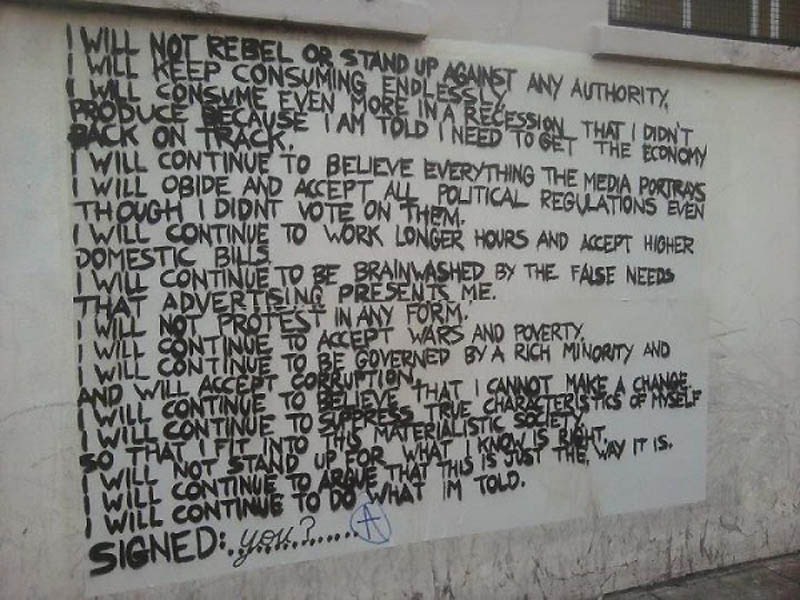 I WILL NOT REBEL OR STAND UP AGAINST ANY AUTHORITY.
I WILL KEEP CONSUMING ENDLESSLY.
I WILL CONSUME EVEN MORE IN A RECESSION THAT I DIDN'T
PRODUCE BECAUSE I AM TOLD I NEED TO GET THE ECONOMY
BACK ON TRACK.
I WILL CONTINUE TO BELIEVE EVERYTHING THE MEDIA PORTRAYS
I WILL OBIDE AND ACCEPT ALL POLITICAL REGULATIONS EVEN
THOUGH I DIDNT VOTE ON THEM.
I WILL CONTINUE TO WORK LONGER HOURS AND ACCEPT HIGHER
DOMESTIC BILLS.
I WILL CONTINUE TO BE BRAINWASHED BY THE FALSE NEEDS
THAT ADVERTISING PRESENTS ME.
I WILL NOT PROTEST IN ANY FORM.
I WILL CONTINUE TO ACCEPT WARS AND POVERTY.
I WILL CONTINUE TO BE GOVERNED BY A RICH MINORITY AND
AND WILL ACCEPT CORRUPTION.
I WILL CONTINUE TO BELIEVE THAT I CANNOT MAKE A CHANGE.
I WILL CONTINUE TO SUPPRESS TRUE CHARACTERISTICS OF MYSELF
SO THAT I FIT INTO THIS MATERIALISTIC SOCIETY.
I WILL NOT STAND UP FOR WHAT I KNOW IS RIGHT.
I WILL CONTINUE TO ARGUE THAT THIS IS JUST THE WAY IT IS.
I WILL CONTINUE TO DO WHAT IM TOLD.
SIGNED:..you?......... A